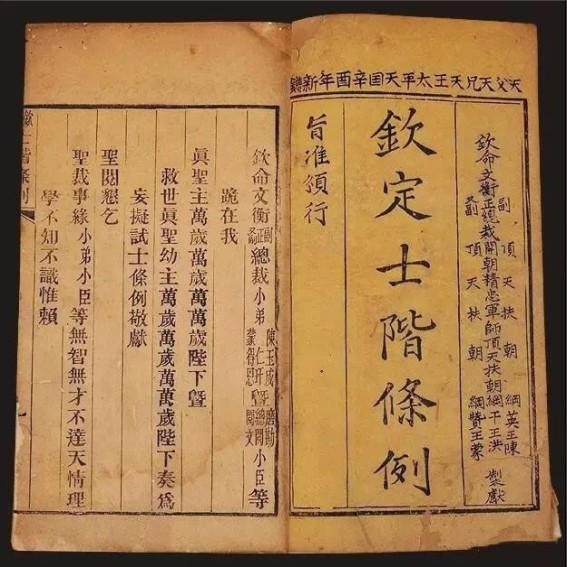 天父天兄天王太平天国辛酉年新鐫
副 頂天扶朝綱英王陳
欽命文衡正總裁開朝精忠軍師頂天扶朝綱干王洪
副 頂天扶朝綱贊王蒙
製獻
欽定士階條例
旨准頒行
欽命文衡副正又副總裁小弟陳玉成仁玕蒙得恩暨磨勘總閱閱文小臣等
跪在我
眞聖主萬歲萬歲萬萬歲陛下暨
救世眞聖幼主萬歲萬歲萬萬歲陛下奏爲
妄擬試士條例敬獻
聖閱懇乞
聖裁事緣小弟小臣等無智無才不達天情理
學不知不識惟賴
士階條例